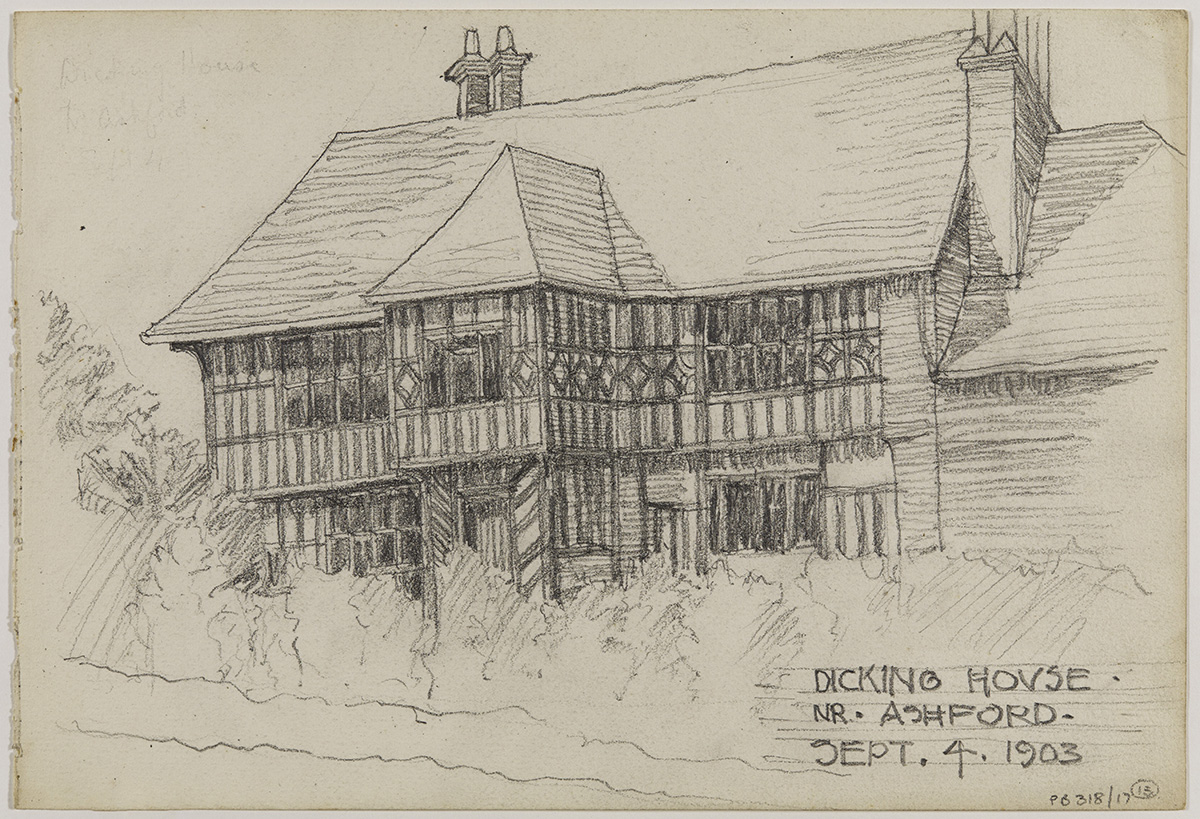 Dicking House
Nr Ashford
DICKING HOVSE ·
NR · ASHFORD ·
SEPT. 4. 1903
PB 318/17 13